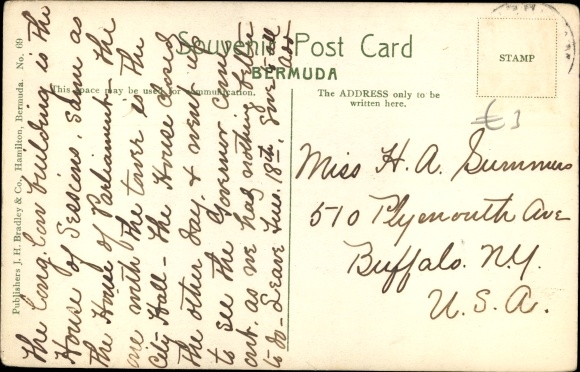 Souvenir Post Card
BERMUDA
This space may be used for communication.
The ADDRESS only to be
written here.
STAMP
€ 3
Publishers J. H. Bradley & Co., Hamilton, Bermuda. No. 09
The Long Low building is the
House of Sessions, same as
the House of Parliament - the
one with the tower is the
City Hall - the House closed
the other day & went up
to see the Governor come
out. as we had nothing better
to do - Leave Tues. 18th. Give
Miss H. A. Summers
510 Plymouth Ave
Buffalo. N.Y.
U.S.A.